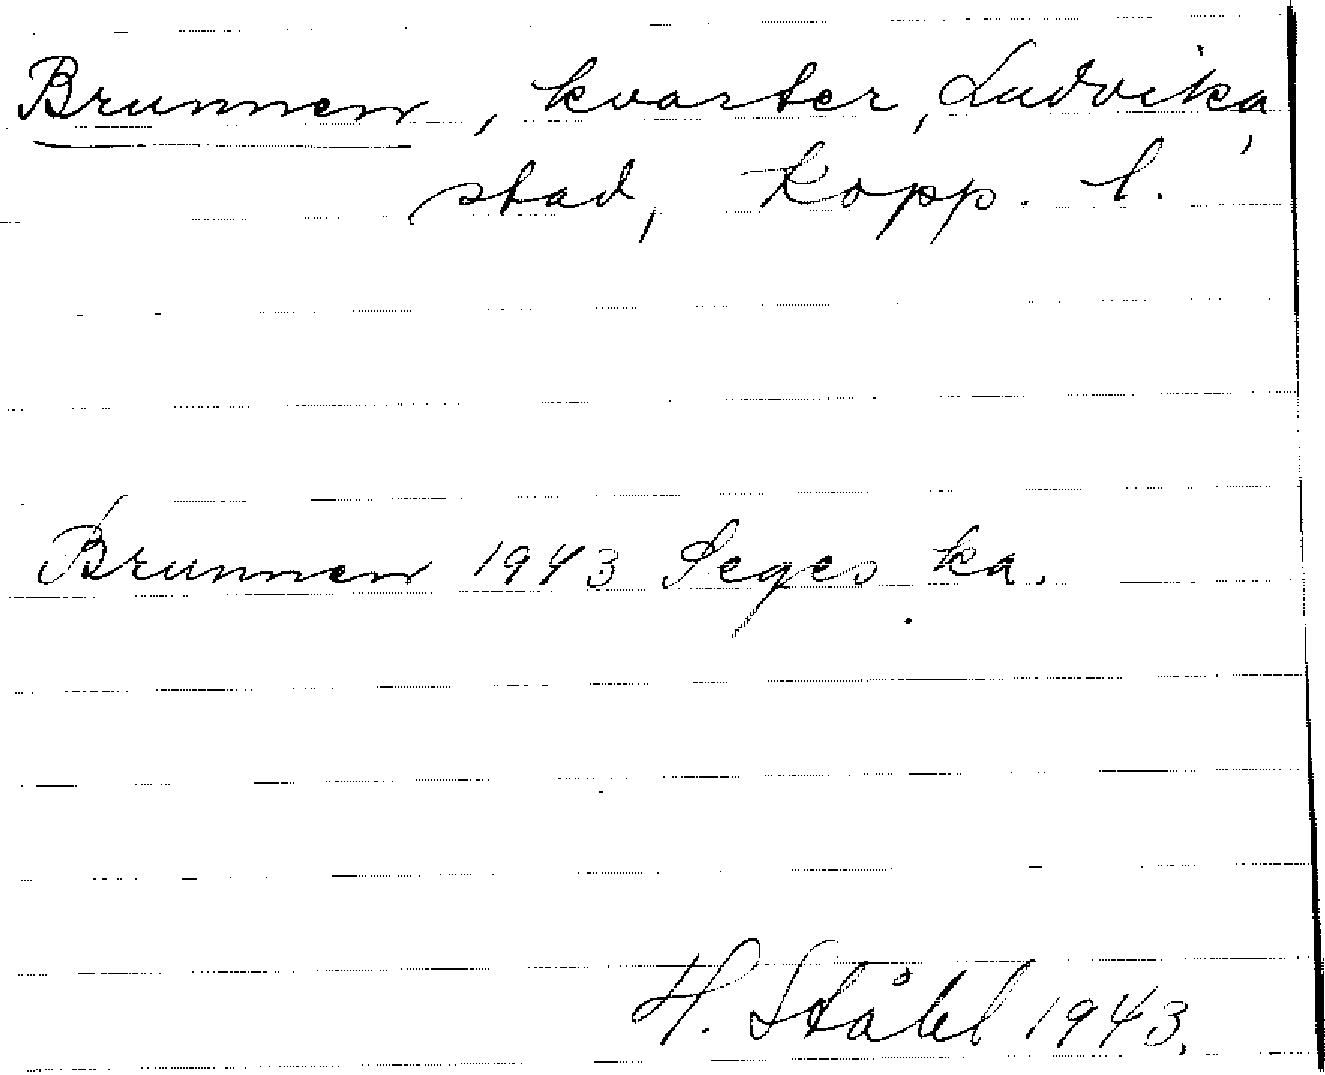 Brunnen, kvarter, Ludvika,
stad, Kopp. l.
Brunnen 1943 Seges ka.
H. Ståhl 1943.